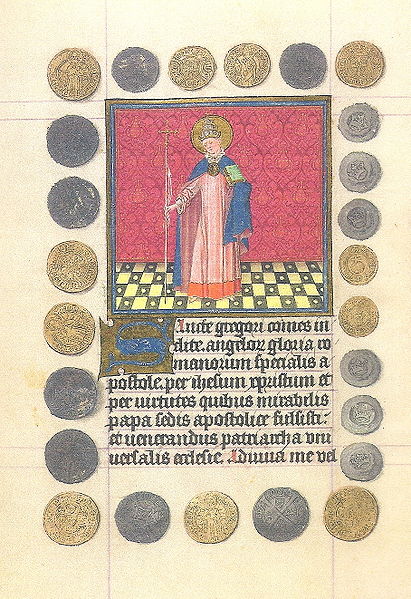 Sancte gregori comes in
clite. angelorum gloria ro
manorum specialis a
postole. per ihesum xpristum et
per virtutes quibus mirabilis
papa sedis apostolice fulsisti:
et venerandus patriarcha vni
uersalis ecclesie. Adiuva me vel